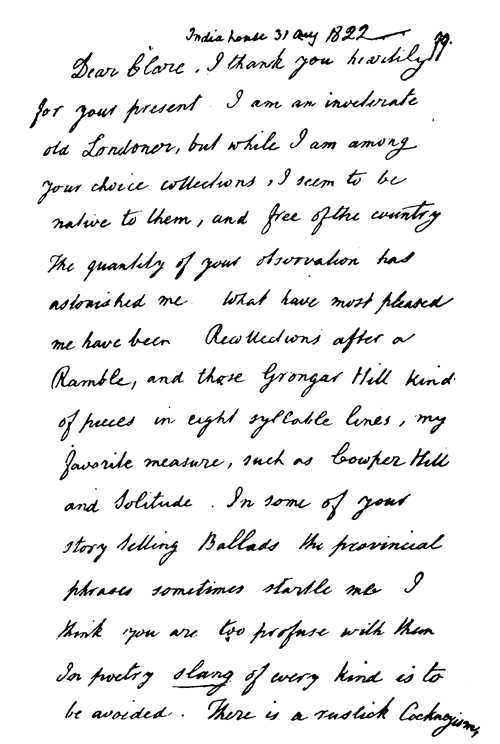 India house 31 Aug 1822
99.
Dear Clare, I thank you heartily
for your present. I am an inveterate
old Londoner, but while I am among
your choice collections, I seem to be
native to them, and free of the country
The quantity of your observation has
astonished me. What have most pleased
me have been Recollections after a
Ramble, and those Grongar Hill kind
of pieces in eight syllable lines, my
favorite measure, such as Cowper Hill
and Solitude. In some of your
story telling Ballads the provincial
phrases sometimes startle me I
think you are too profuse with them
In poetry slang of every kind is to
be avoided. There is a rustick Cockneyism,